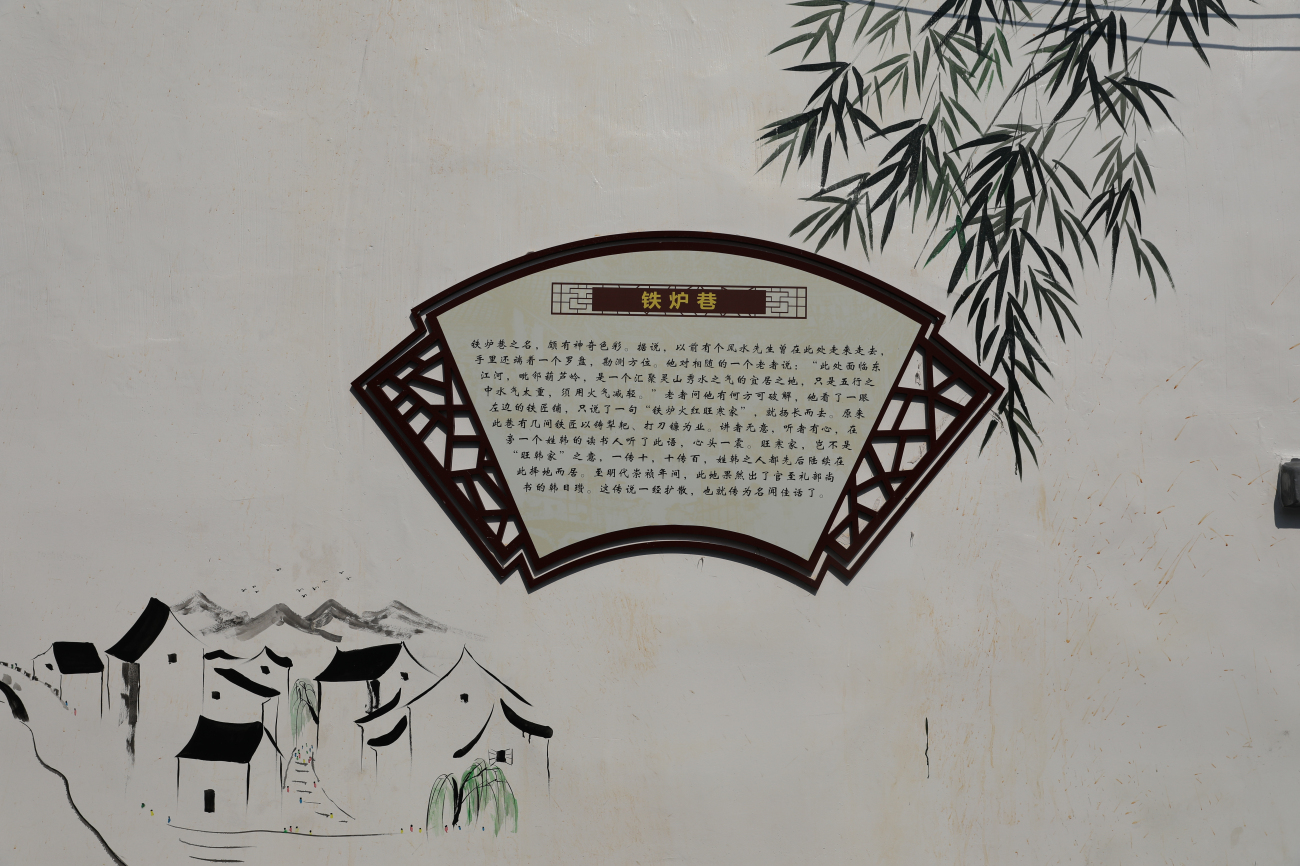 铁炉巷
铁炉巷之名，颇有神奇色彩。据说，以前有个风水先生曾在此处走来走去，
手里还端着一个罗盘，勘测方位。他对相随的一个老者说：“此处面临东
江河，毗邻葫芦岭，是一个汇聚灵山秀水之气的宜居之地，只是五行之
中水气太重，须用火气减轻。”老者问他有何方可破解，他看了一眼
左边的铁匠铺，只说了一句“铁炉火红旺寒家”，就扬长而去。原来
此巷有几间铁匠以铸犁耙、打刀镰为业。讲者无意，听者有心，在
旁一个姓韩的读书人听了此语，心头一震。旺寒家，岂不是
“旺韩家”之意，一传十，十传百，姓韩之人都先后陆续在
此择地而居。至明代崇祯年间，此地果然出了官至礼部尚
书的韩日瓒。这传说一经扩散，也就传为名闻佳话了。